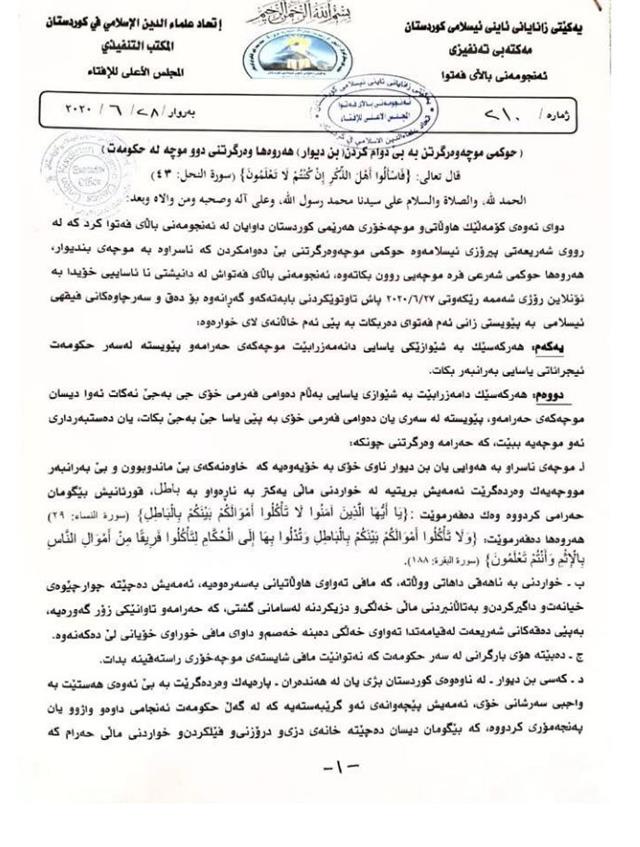 بسم الله الرحمن الرحيم
یەکێتی زانایانی ئاینی ئیسلامی کوردستان
مەکتەبی تەنفیزی
ئەنجومەنی باڵای فەتوا
إتحاد علماء الدين الإسلامي في كوردستان
المكتب التنفيذي
المجلس الأعلى للإفتاء
ژمارە/ ٢١٠
بەروار/ ٢٨ / ٦ / ٢٠٢٠
ئەنجومەنی باڵای فەتوا
المجلس الأعلى للإفتاء
Executive Office
(حوکمی موچەوەرگرتن بە بێ دەوام کردن(بن دیوار) هەروەها وەرگرتنی دوو موچە لە حکومەت)
قال تعالى: {فَاسْأَلُوا أَهْلَ الذِّكْرِ إِنْ كُنْتُمْ لَا تَعْلَمُونَ} (سورة النحل: ٤٣)
الحمد لله، والصلاة والسلام على سيدنا محمد رسول الله، وعلى آله وصحبه ومن والاه وبعد:
دوای ئەوەی کۆمەڵێك هاوڵاتی‌و موچەخۆری هەرێمی کوردستان داوایان لە ئەنجومەنی باڵای فەتوا کرد کە لە
رووی شەریعەتی پیرۆزی ئیسلامەوە حوکمی موچەوەرگرتنی بێ دەوامکردن کە ناسراوە بە موچەی بندیوار،
هەروەها حوکمی شەرعی فرە موچەیی روون بکاتەوە، ئەنجومەنی باڵای فەتواش لە دانیشتنی نا ئاساییی خۆیدا بە
ئۆنلاین رۆژی شەممە رێکەوتی ٢٠٢٠/٦/٢٧ پاش تاوتوێکردنی بابەتەکەو گەرانەوە بۆ دەق و سەرچاوەکانی فیقهی
ئیسلامی بە پێویستی زانی ئەم فەتوای دەربکات بە پێی ئەم خاڵانەی لای خوارەوە:
یەکەم: هەرکەسێك بە شێوازێکی یاسایی دانەمەزرابێت موچەکەی حەرامەو پێویستە لەسەر حکومەت
ئیجرائاتی یاسایی بەرانبەر بکات.
دووەم: هەرکەسێك دامەزرابێت بە شێوازی یاسایی بەڵام دەوامی فەرمی خۆی جی بەجێ نەکات ئەوا دیسان
موچەکەی حەرامەو، پێویستە لە سەری یان دەوامی فەرمی خۆی بە پێی یاسا جێ بەجێ بکات، یان دەستبەرداری
ئەو موچەیە ببێت، کە حەرامە وەرگرتنی چونکە:
أ‌. موچەی ناسراو بە هەوایی یان بن دیوار ناوی خۆی بە خۆیەوەیە کە خاوەنەکەی بێ ماندوبوون و بێ بەرانبەر
مووچەیەك وەردەگرێت ئەمەیش بریتیە لە خواردنی ماڵی یەکتر بە نارەواو بە باطل، قورئانیش بێگومان
حەرامی کردووە وەك دەفەرموێت: {يَا أَيُّهَا الَّذِينَ آمَنُوا لَا تَأْكُلُوا أَمْوَالَكُمْ بَيْنَكُمْ بِالْبَاطِلِ} (سورة النساء: ٢٩)
هەروەها دەفەرموێت: {وَلَا تَأْكُلُوا أَمْوَالَكُمْ بَيْنَكُمْ بِالْبَاطِلِ وَتُدْلُوا بِهَا إِلَى الْحُكَّامِ لِتَأْكُلُوا فَرِيقًا مِنْ أَمْوَالِ النَّاسِ
بِالْإِثْمِ وَأَنْتُمْ تَعْلَمُونَ} (سورة البقرة: ١٨٨).
ب - خواردنی بە ناهەقی داهاتی ووڵاتە، کە مافی تەواوی هاوڵاتیانی بەسەرەوەیە، ئەمەیش دەچێتە چوارچێوەی
خیانەت‌و داگیرکردن‌و بەتاڵانبردنی ماڵی خەڵکی‌و دزیکردنە لەسامانی گشتی، کە حەرامەو تاوانێکی زۆر گەورەیە،
بەپێی دەقەکانی شەریعەت لەقیامەتدا تەواوی خەڵکی دەبنە خەصم‌و داوای مافی خوراوی خۆیانی لێ دەکەنەوە.
ج - دەبێتە هۆی بارگرانی لە سەر حکومەت کە نەتوانێت مافی شایستەی موچەخۆری راستەقینە بدات.
د - کەسی بن دیوار - لە ناوەوەی کوردستان بژی یان لە هەندەران - پارەیەك وەردەگرێت بە بێ ئەوەی هەستێت بە
واجبی سەرشانی خۆی، ئەمەیش پێچەوانەی ئەو گرێبەستەیە کە لە گەڵ حکومەت ئەنجامی داوەو واژوو یان
پەنجەمۆری کردووە، کە بێگومان دیسان دەچێتە خانەی دزی‌و درۆزنی‌و فێلکردن‌و خواردنی ماڵی حەرام کە
-١-